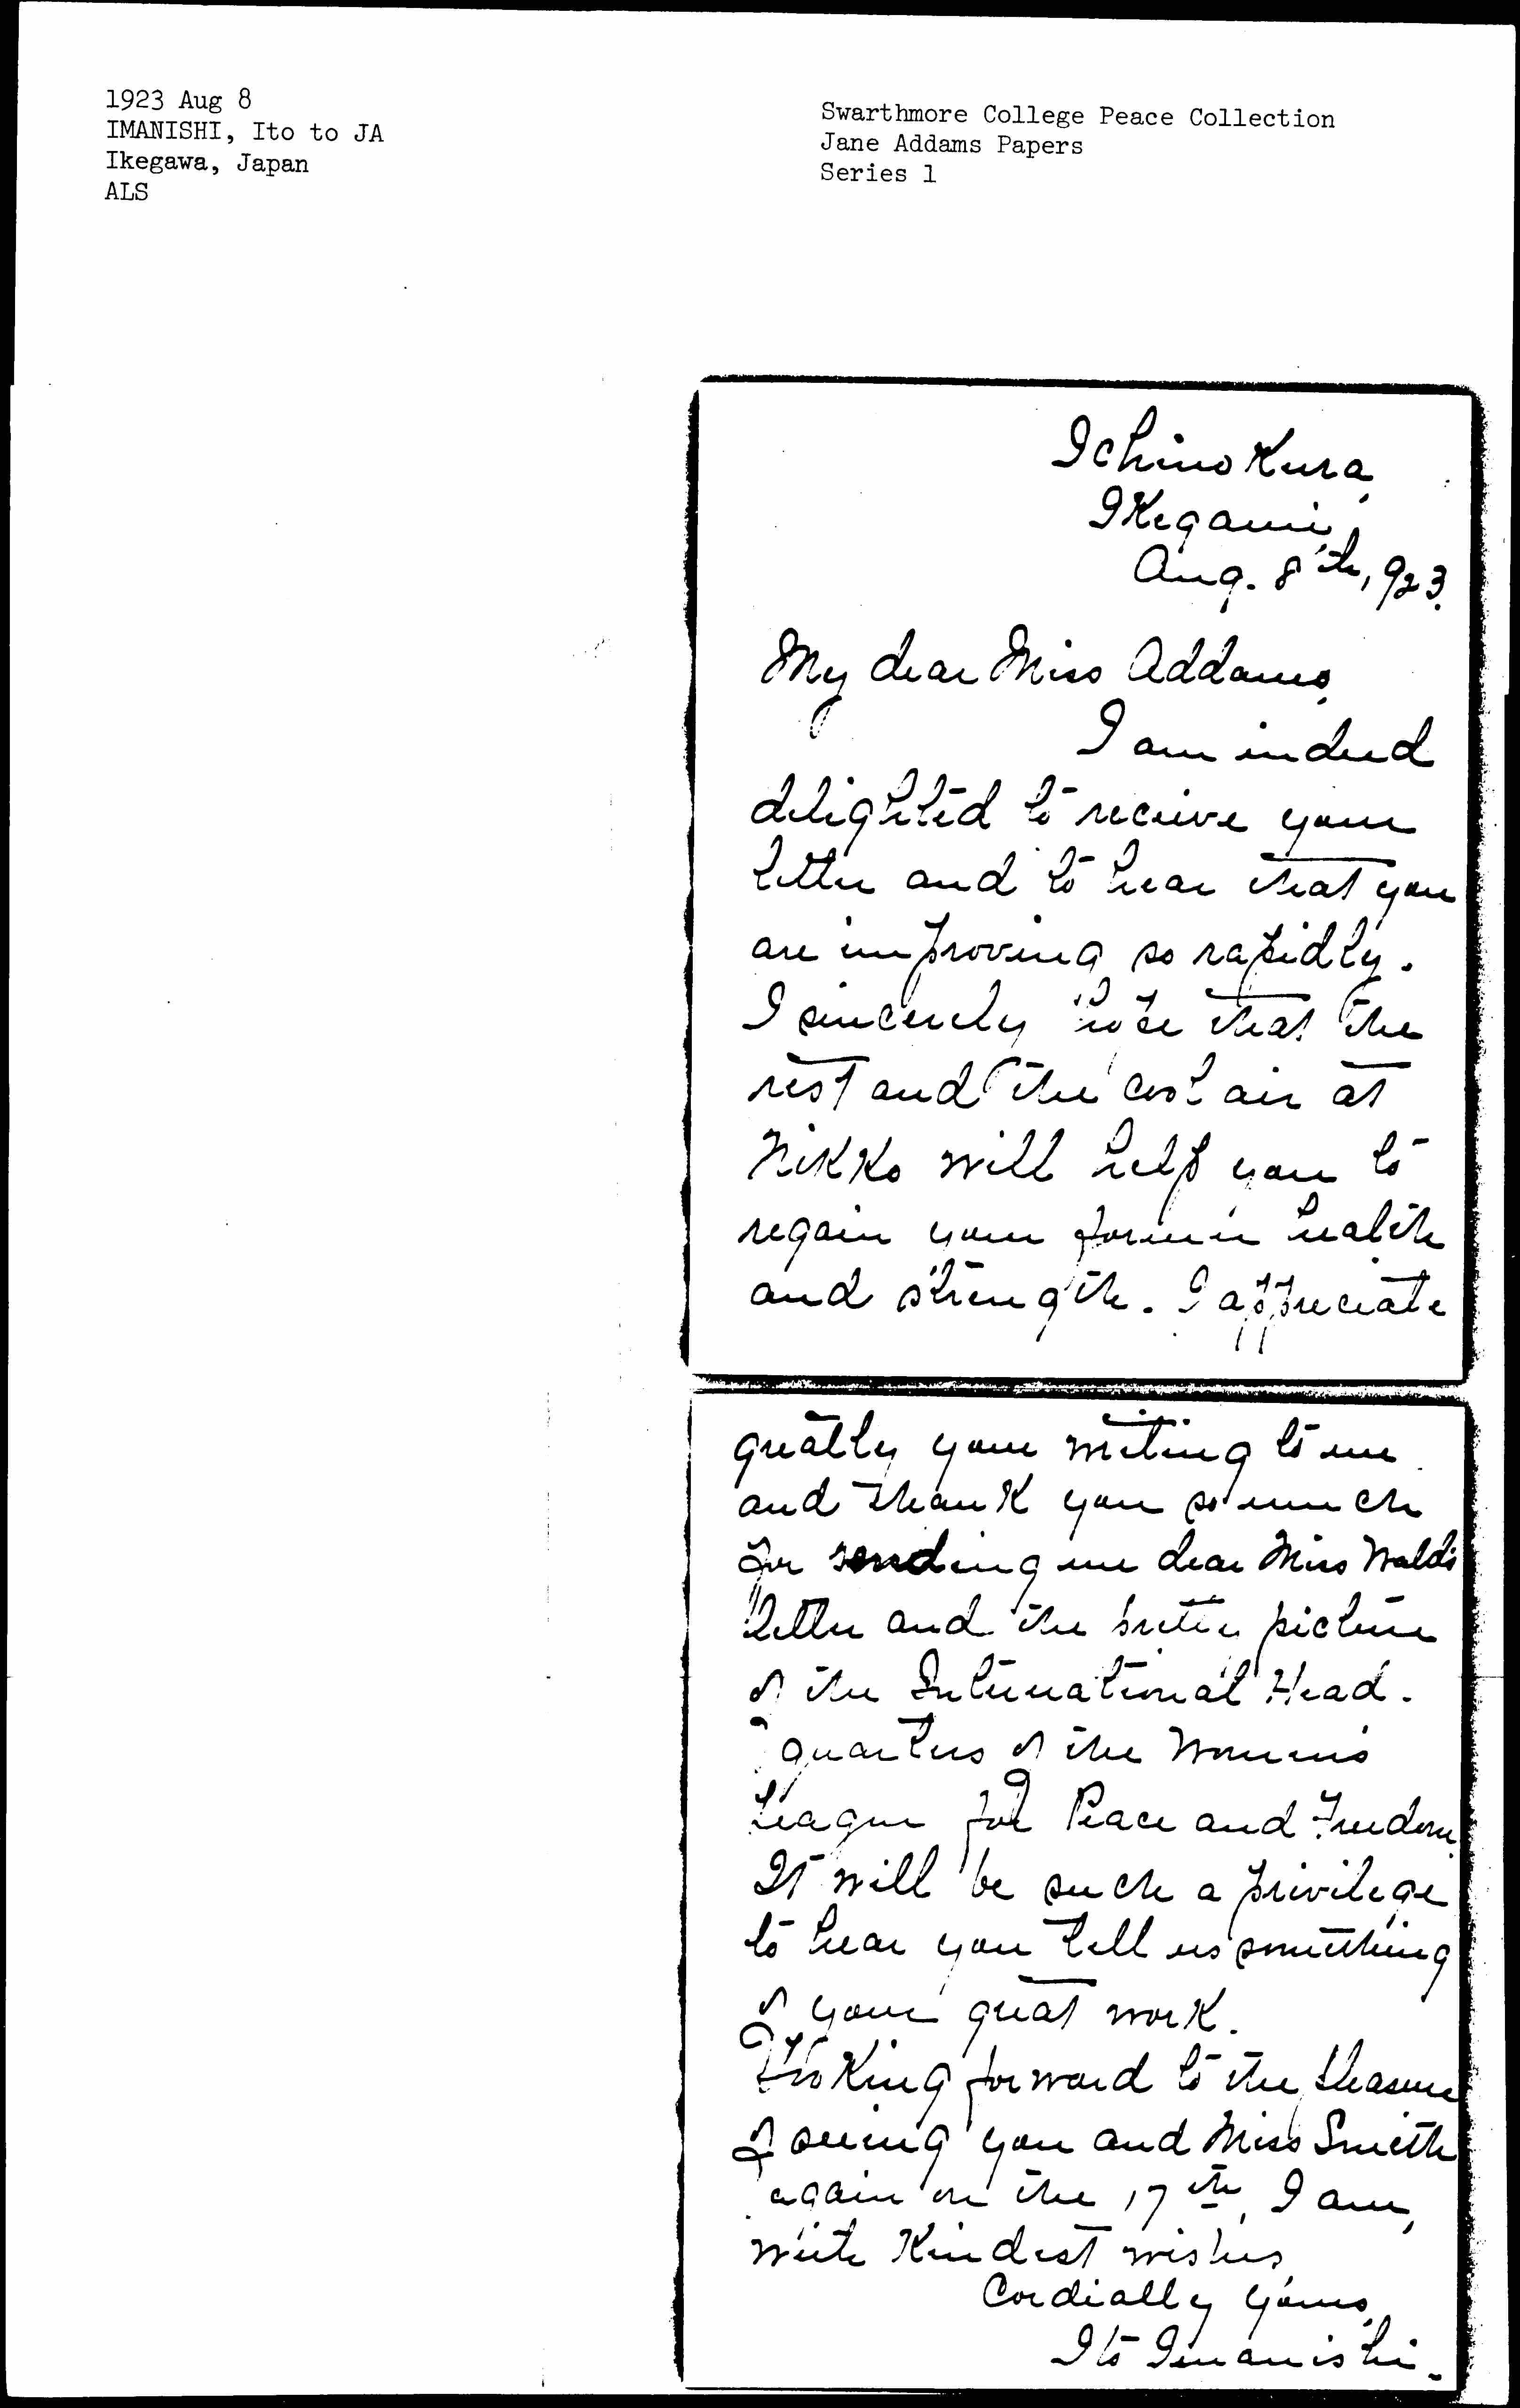 1923 Aug 8
IMANISHI, Ito to JA
Ikegawa, Japan
ALS
Swarthmore College Peace Collection
Jane Addams Papers
Series 1
Ichinokura,
Ikegami,
Aug. 8th, 923.
My dear Miss Addams,
I am indeed
delighted to receive your
letter and to hear that you
are improving so rapidly.
I sincerely hope that the
rest and the cool air at
Nikko will help you to
regain your former health
and strength. I appreciate
greatly your writing to me
and thank you so much
for sending me dear Miss Wald's
letter and the pretty picture
of the International Head-
quarters of the Women's
League for Peace and Freedom.
It will be such a privilege
to hear you tell us something
of your great work.
Looking forward to the pleasure
of seeing you and Miss Smith
again on the 17th, I am,
with kindest wishes,
Cordially yours,
Ito Imanishi.